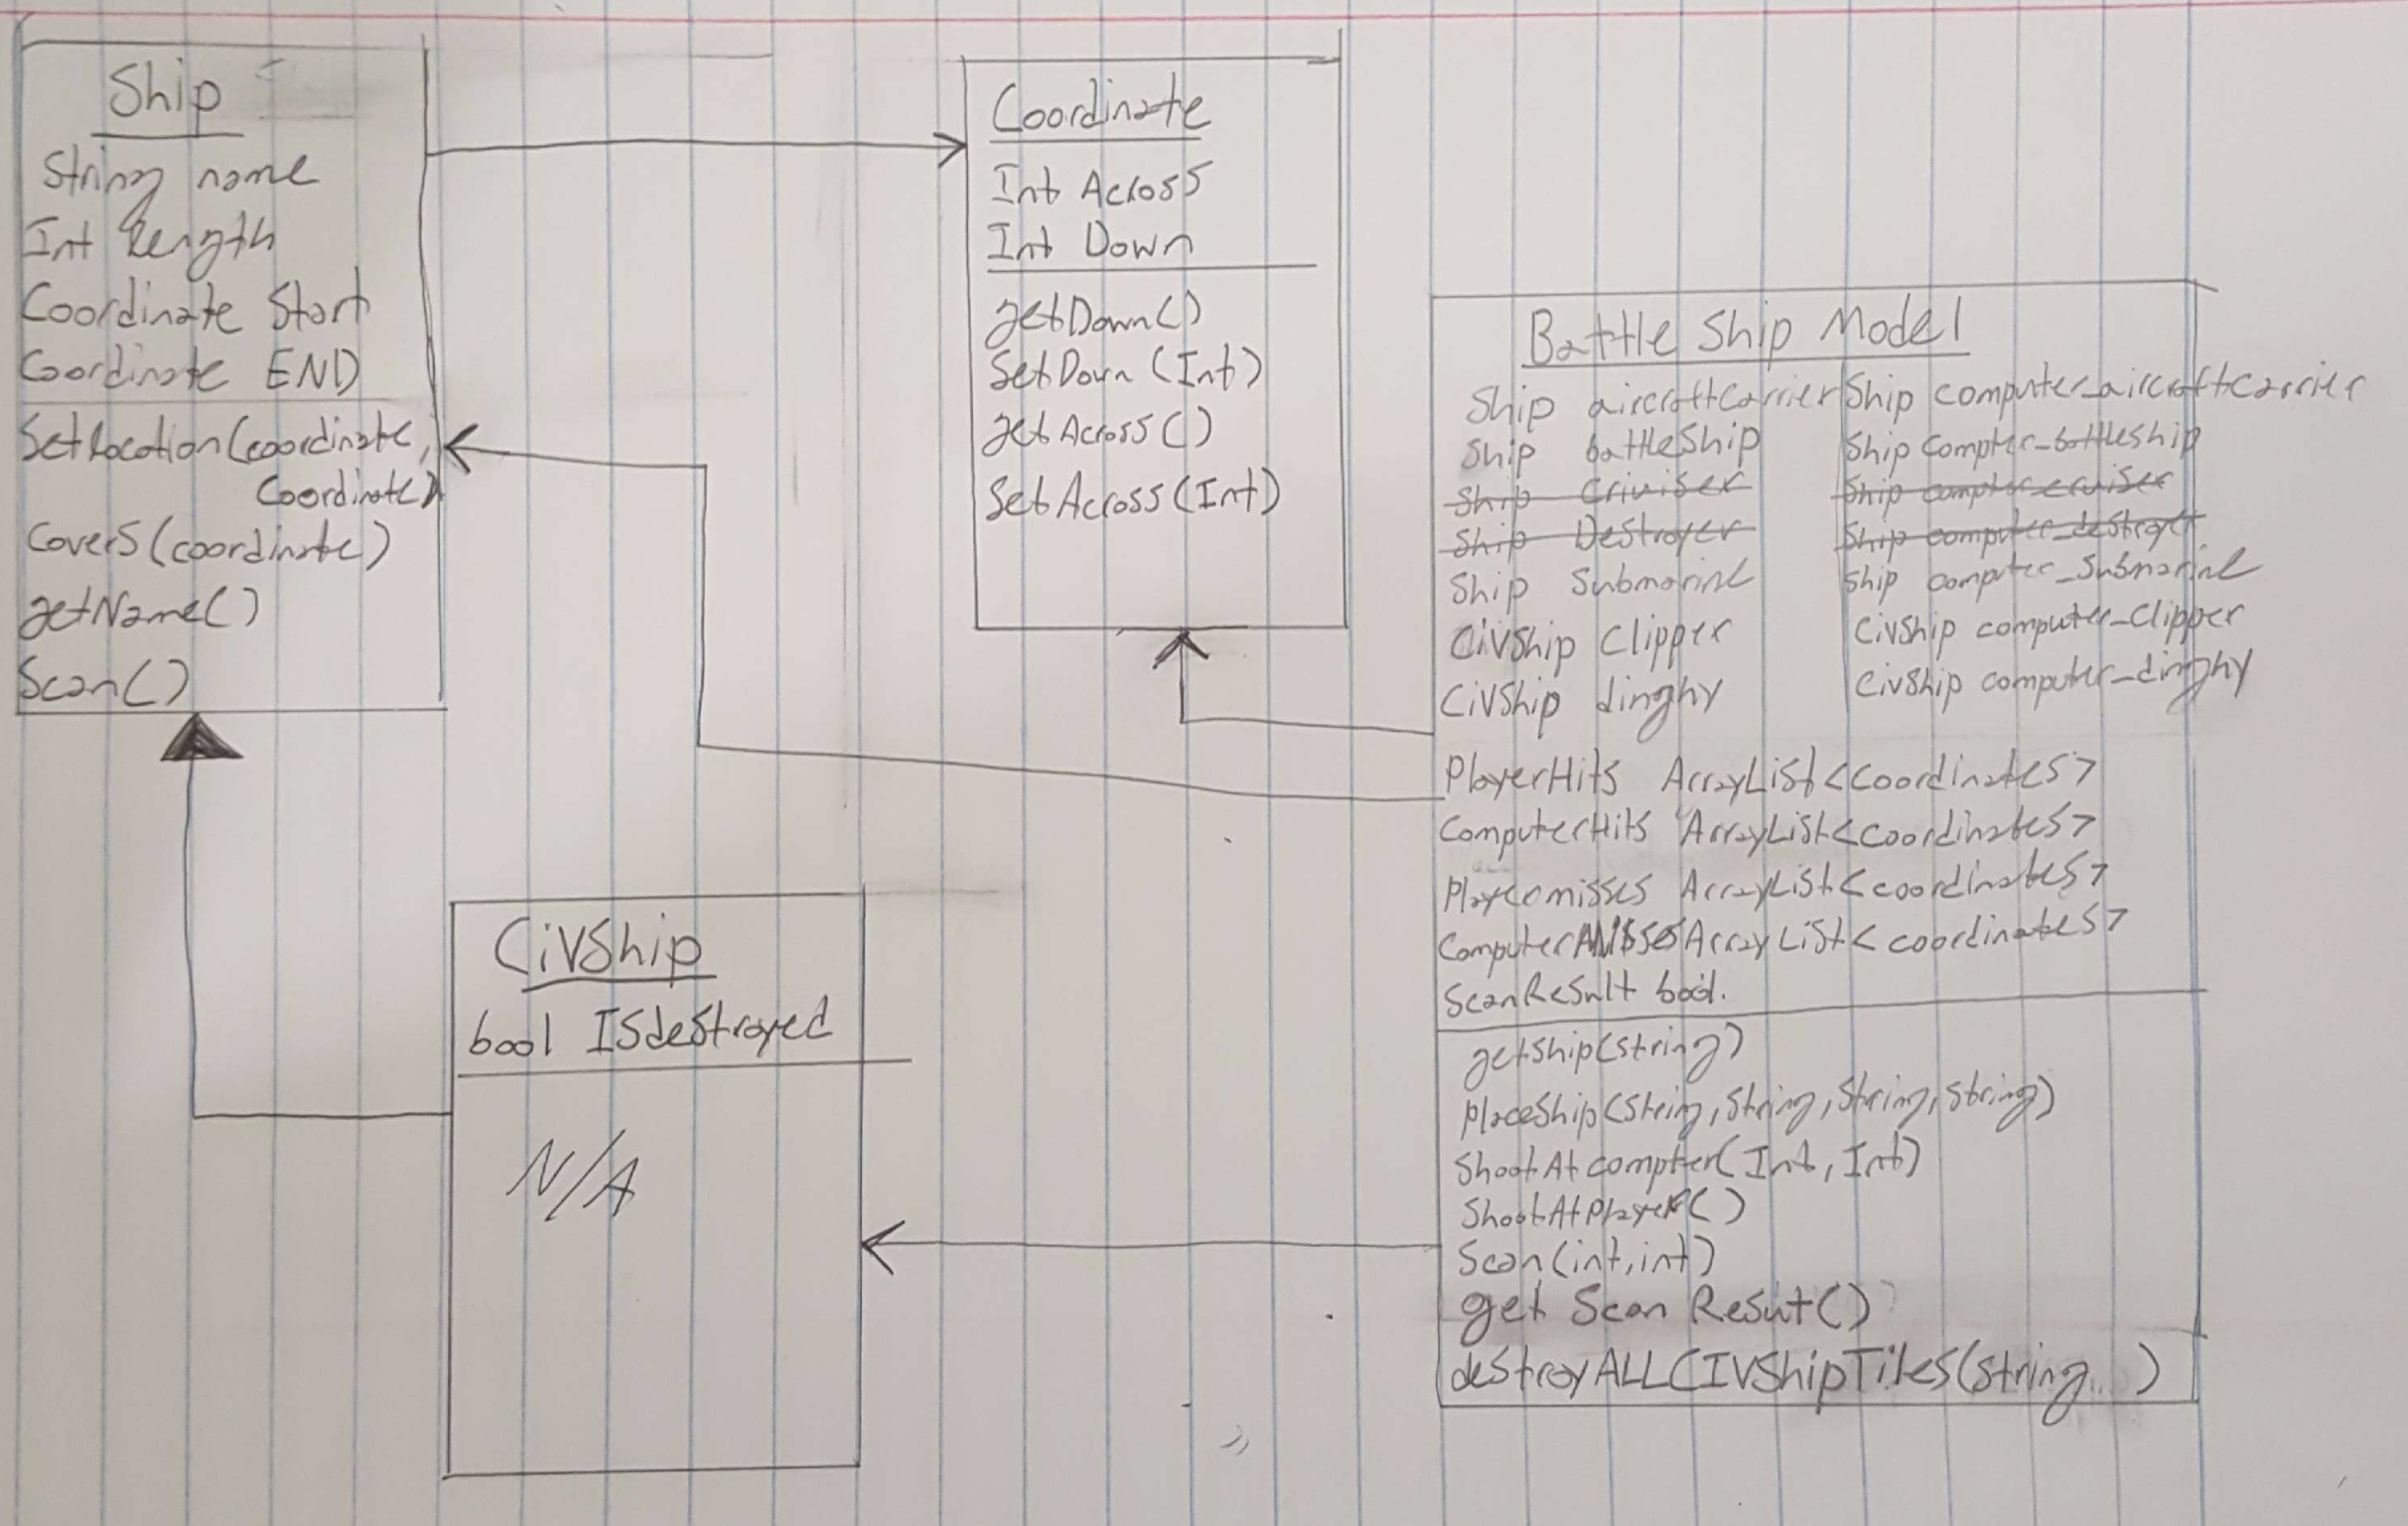 Ship
String name
Int Length
Coordinate Start
Coordinate END
SetLocation(coordinate,
Coordinate)
CoverS(coordinate)
getName()
Scan()
Coordinate
Int Across
Int Down
getDown()
SetDown(Int)
getAcross()
SetAcross(Int)
Battle Ship Model
Ship aircraftCarrier
Ship battleShip
Ship Criuiser
Ship Destroyer
Ship Submarine
CivShip Clipper
CivShip dinghy
Ship computer_aircraftCarrier
Ship compter_battleship
Ship computer cruiser
Ship computer_destroyer
Ship computer_Submarine
CivShip computer_Clipper
CivShip computer_dinghy
PlayerHits ArrayList<Coordinates>
ComputerHits ArrayList<Coordinates>
Playermisses ArrayList<coordinates>
ComputerMisses ArrayList<coordinates>
ScanResult bool.
getShip(string)
PlaceShip(String, String, String, String)
ShootAtcompter(Int, Int)
ShootAtPlayer()
Scan(int, int)
get Scan Resut()
destroyALLCIVShipTiles(string )
CivShip
bool ISdestroyed
N/A